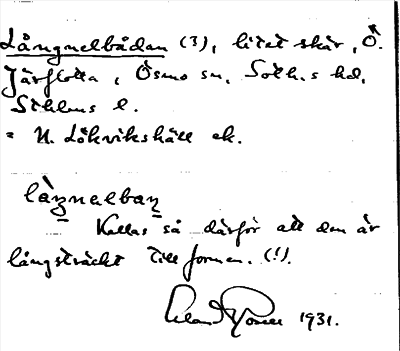 Långnelbådan (3), litet skär, Ö.
Järflotta, Ösmo sn, Soth.s hd,
Sthlms l.
= N. Lökvikshäll ek.
làŋnelbaŋ
Kallas så därför att den är
långsträckt till formen. (!).
1931.